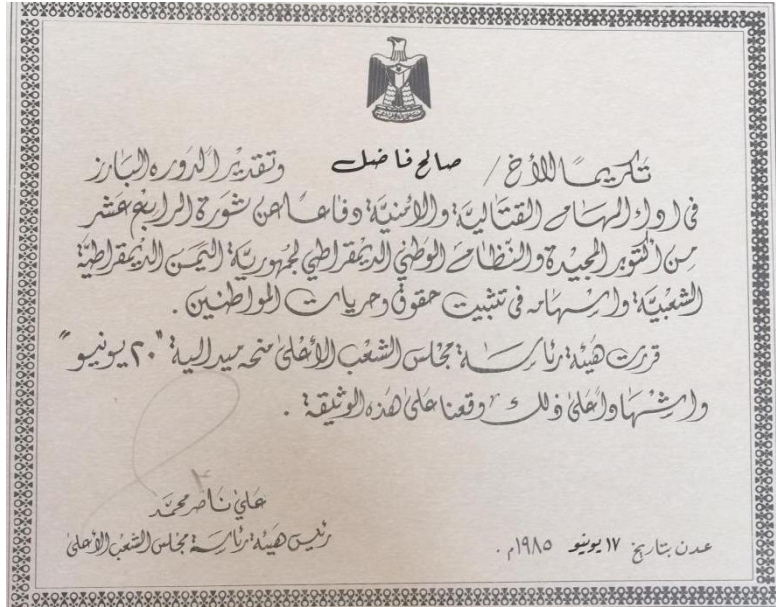 تكريمًا للأخ / صالح فاضل وتقديرًا لدوره البارز
في اداء المهام القتالية والامنية دفاعًا عن ثورة الرابع عشر
من اكتوبر المجيدة والنظام الوطني الديمقراطي لجمهورية اليمن الديمقراطية
الشعبية واسهامه في تثبيت حقوق وحريات المواطنين .
قررت هيئة رئاسة مجلس الشعب الأعلى منحه ميدالية "٢٠ يونيو"
واشهادا على ذلك وقعنا على هذه الوثيقة .
علي ناصر محمد
رئيس هيئة رئاسة مجلس الشعب الأعلى
عدن بتاريخ ١٧ يونيو ١٩٨٥م .